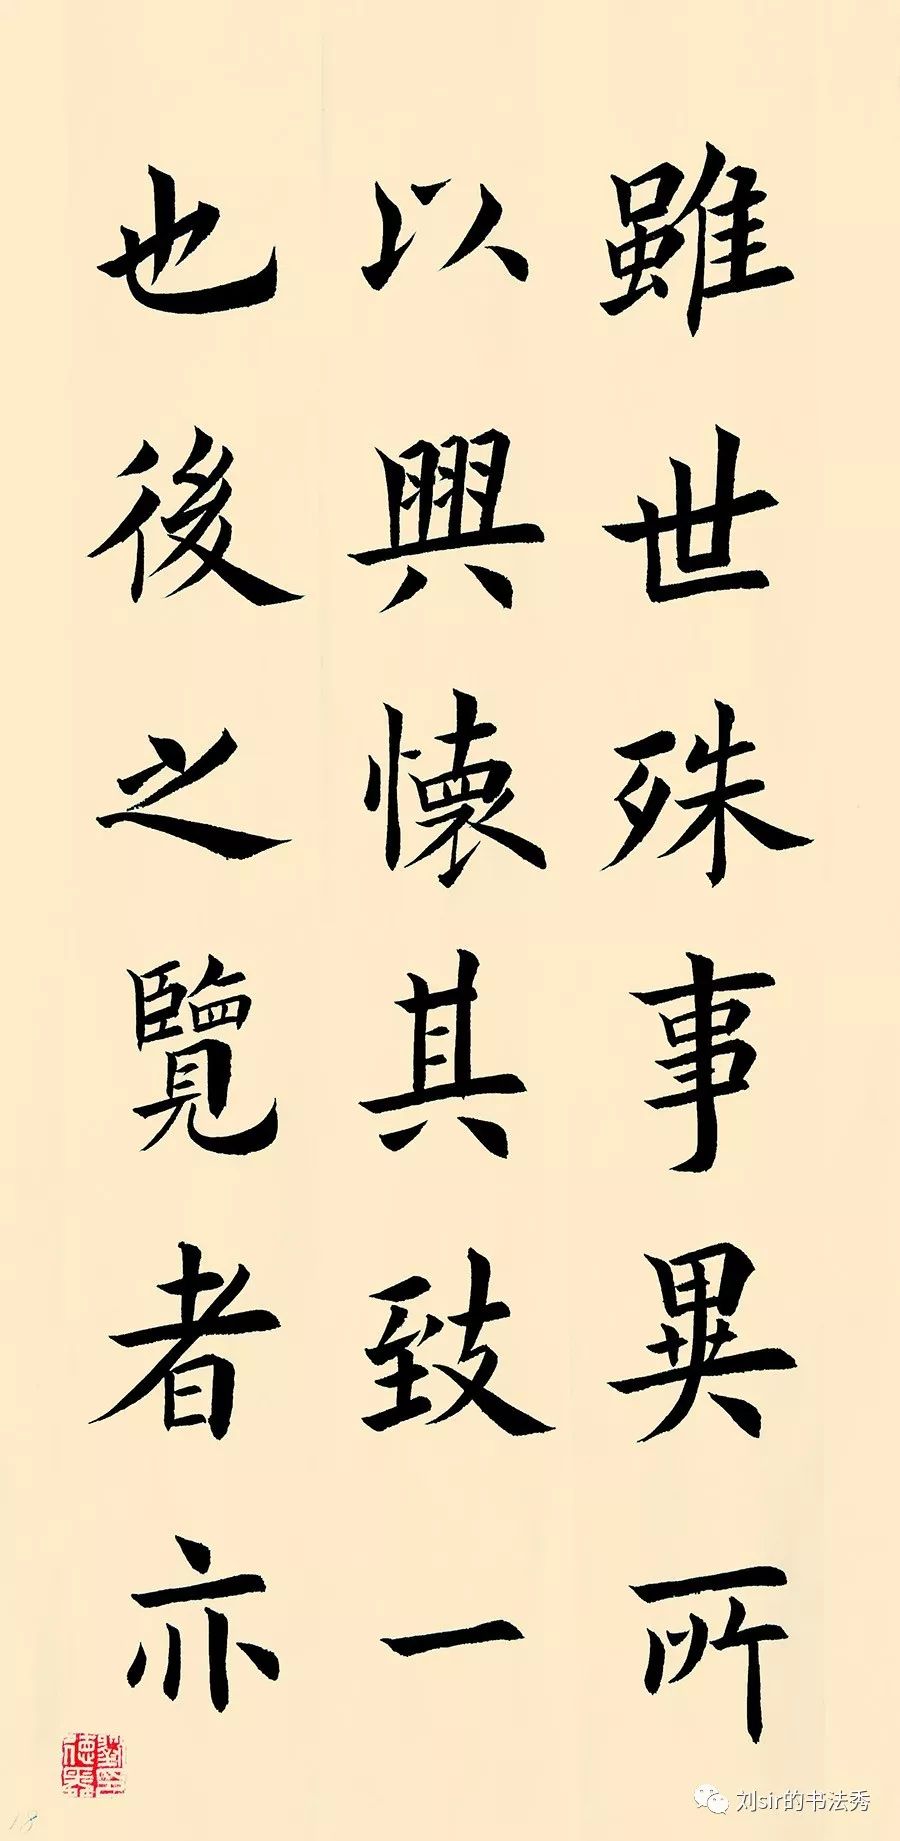 雖世殊事異所
以興懷其致一
也後之覽者亦
18
刘sir的书法秀